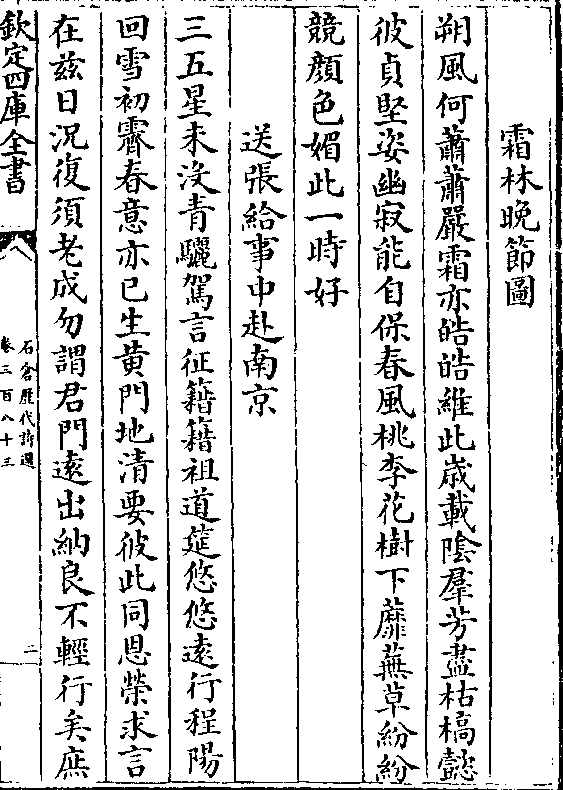 霜林晚節圖
朔風何蕭蕭嚴霜亦皓皓維此歳載陰羣芳盡枯槁懿
彼貞堅姿幽寂能自保春風桃李花樹下蘼蕪草紛紛
競顔色媚此一時好
送張給事中赴南京
三五星未沒青驪駕言征籍籍祖道筵悠悠遠行程陽
回雪初霽春意亦已生黄門地清要彼此同恩榮求言
在兹日況復須老成勿謂君門遠出納良不輕行矣庶
欽定四庫全書
石倉歴代詩選
卷三百八十三
二